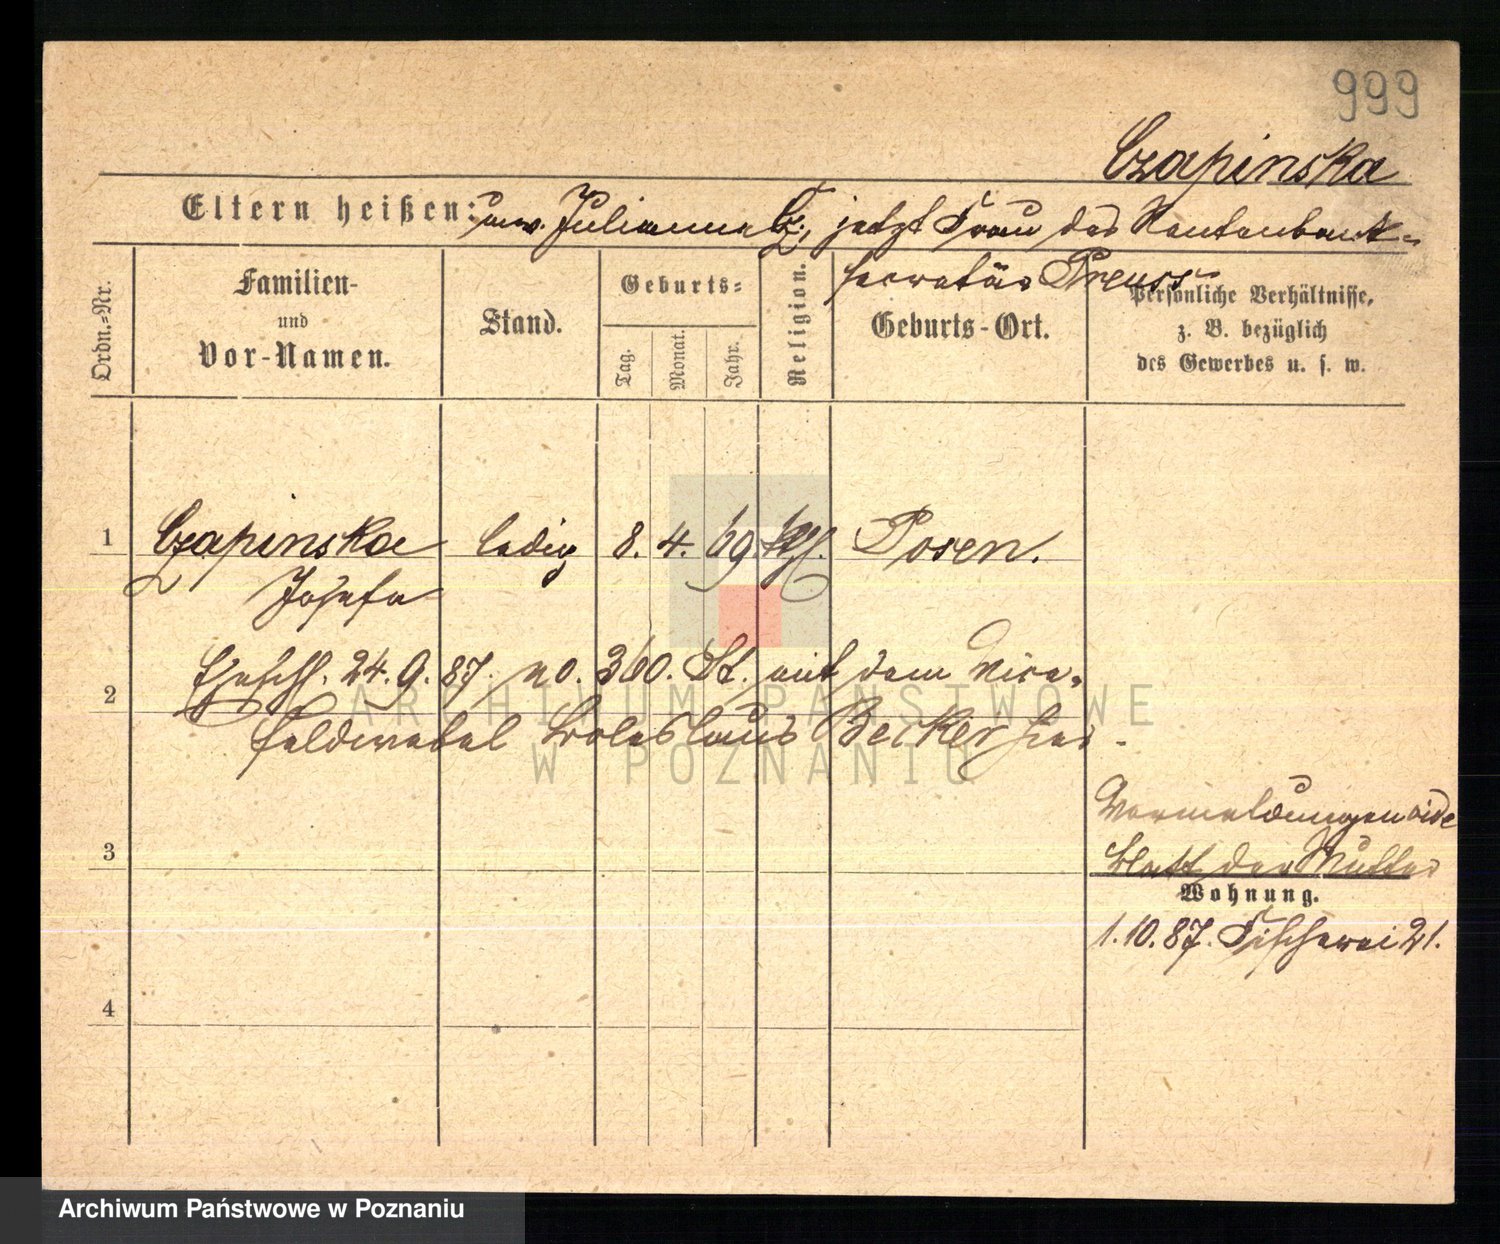 999
Czapinska
Eltern heißen: unv. Julianna Cz., jetzt Frau des Rentenbank-
secretär Preuss
Ordn.-Nr.
Familien-
und
Vor-Namen.
Stand.
Geburts-
Tag.
Monat.
Jahr.
Religion.
Geburts-Ort.
Persönliche Verhältnisse,
z. B. bezüglich
des Gewerbes u. s. w.
1 Czapinska ledig 8. 4. 69 kth. Posen.
Josefa
2 Ehschl. 24.9.87. no. 360. St. mit dem Vice-
feldwebel Boleslaus Becker hier.
ARCHIWUM PAŃSTWOWE
W POZNANIU
3
Vormeldungen side
Blatt der Mutter
Wohnung.
1.10.87. Fischerei 21.
4
Archiwum Państwowe w Poznaniu